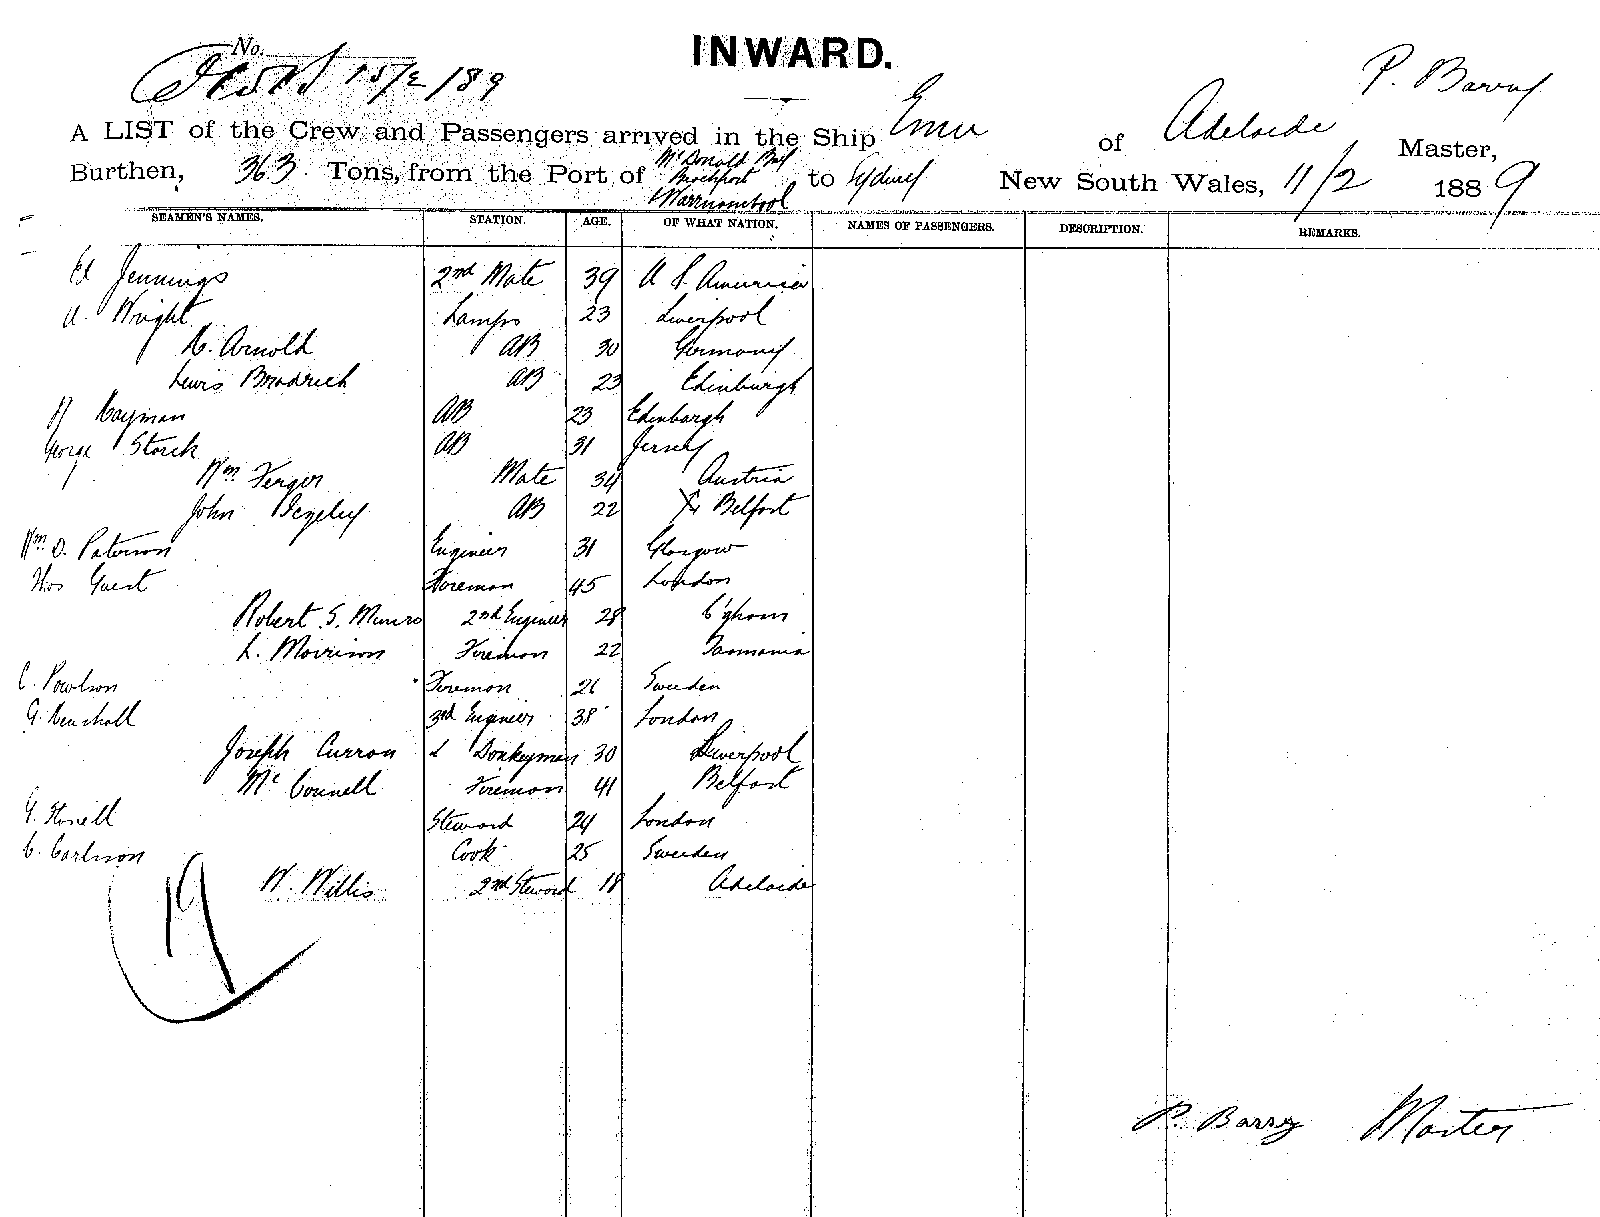 INWARD.
No.
15/2/89
P. Barry
A LIST of the Crew and Passengers arrived in the Ship Emu of Adelaide Master,
Burthen, 363 Tons, from the Port of McDonald Bay Beachport & Warrnambool to Sydney New South Wales, 11/2 1889
SEAMEN'S NAMES. STATION. AGE. OF WHAT NATION. NAMES OF PASSENGERS. DESCRIPTION. REMARKS.
Ed Jennings 2nd Mate 39 U S America
A. Wright Lamps 23 Liverpool
Arnold AB 30 Germany
Lewis Brodrich AB 23 Edinburgh
AB 23 Edinburgh
George Storck AB 31 Jersey
Wm Ferger Mate 34 Austria
John AB 22 Belfast
Wm D. Paterson Engineer 31 Glasgow
Thos Guest Fireman 45 London
Robert S. Munro 2nd Engineer 28 B'ham
L. Morrison Fireman 22 Tasmania
C. Powlson Fireman 26 Sweden
G. 3rd Engineer 38 London
Joseph Curran Donkeyman 30 Liverpool
McConnell Fireman 41 Belfast
G. Steward 24 London
C. Carlson Cook 25 Sweden
W. Willis 2nd Steward 18 Adelaide
19
P. Barry Master